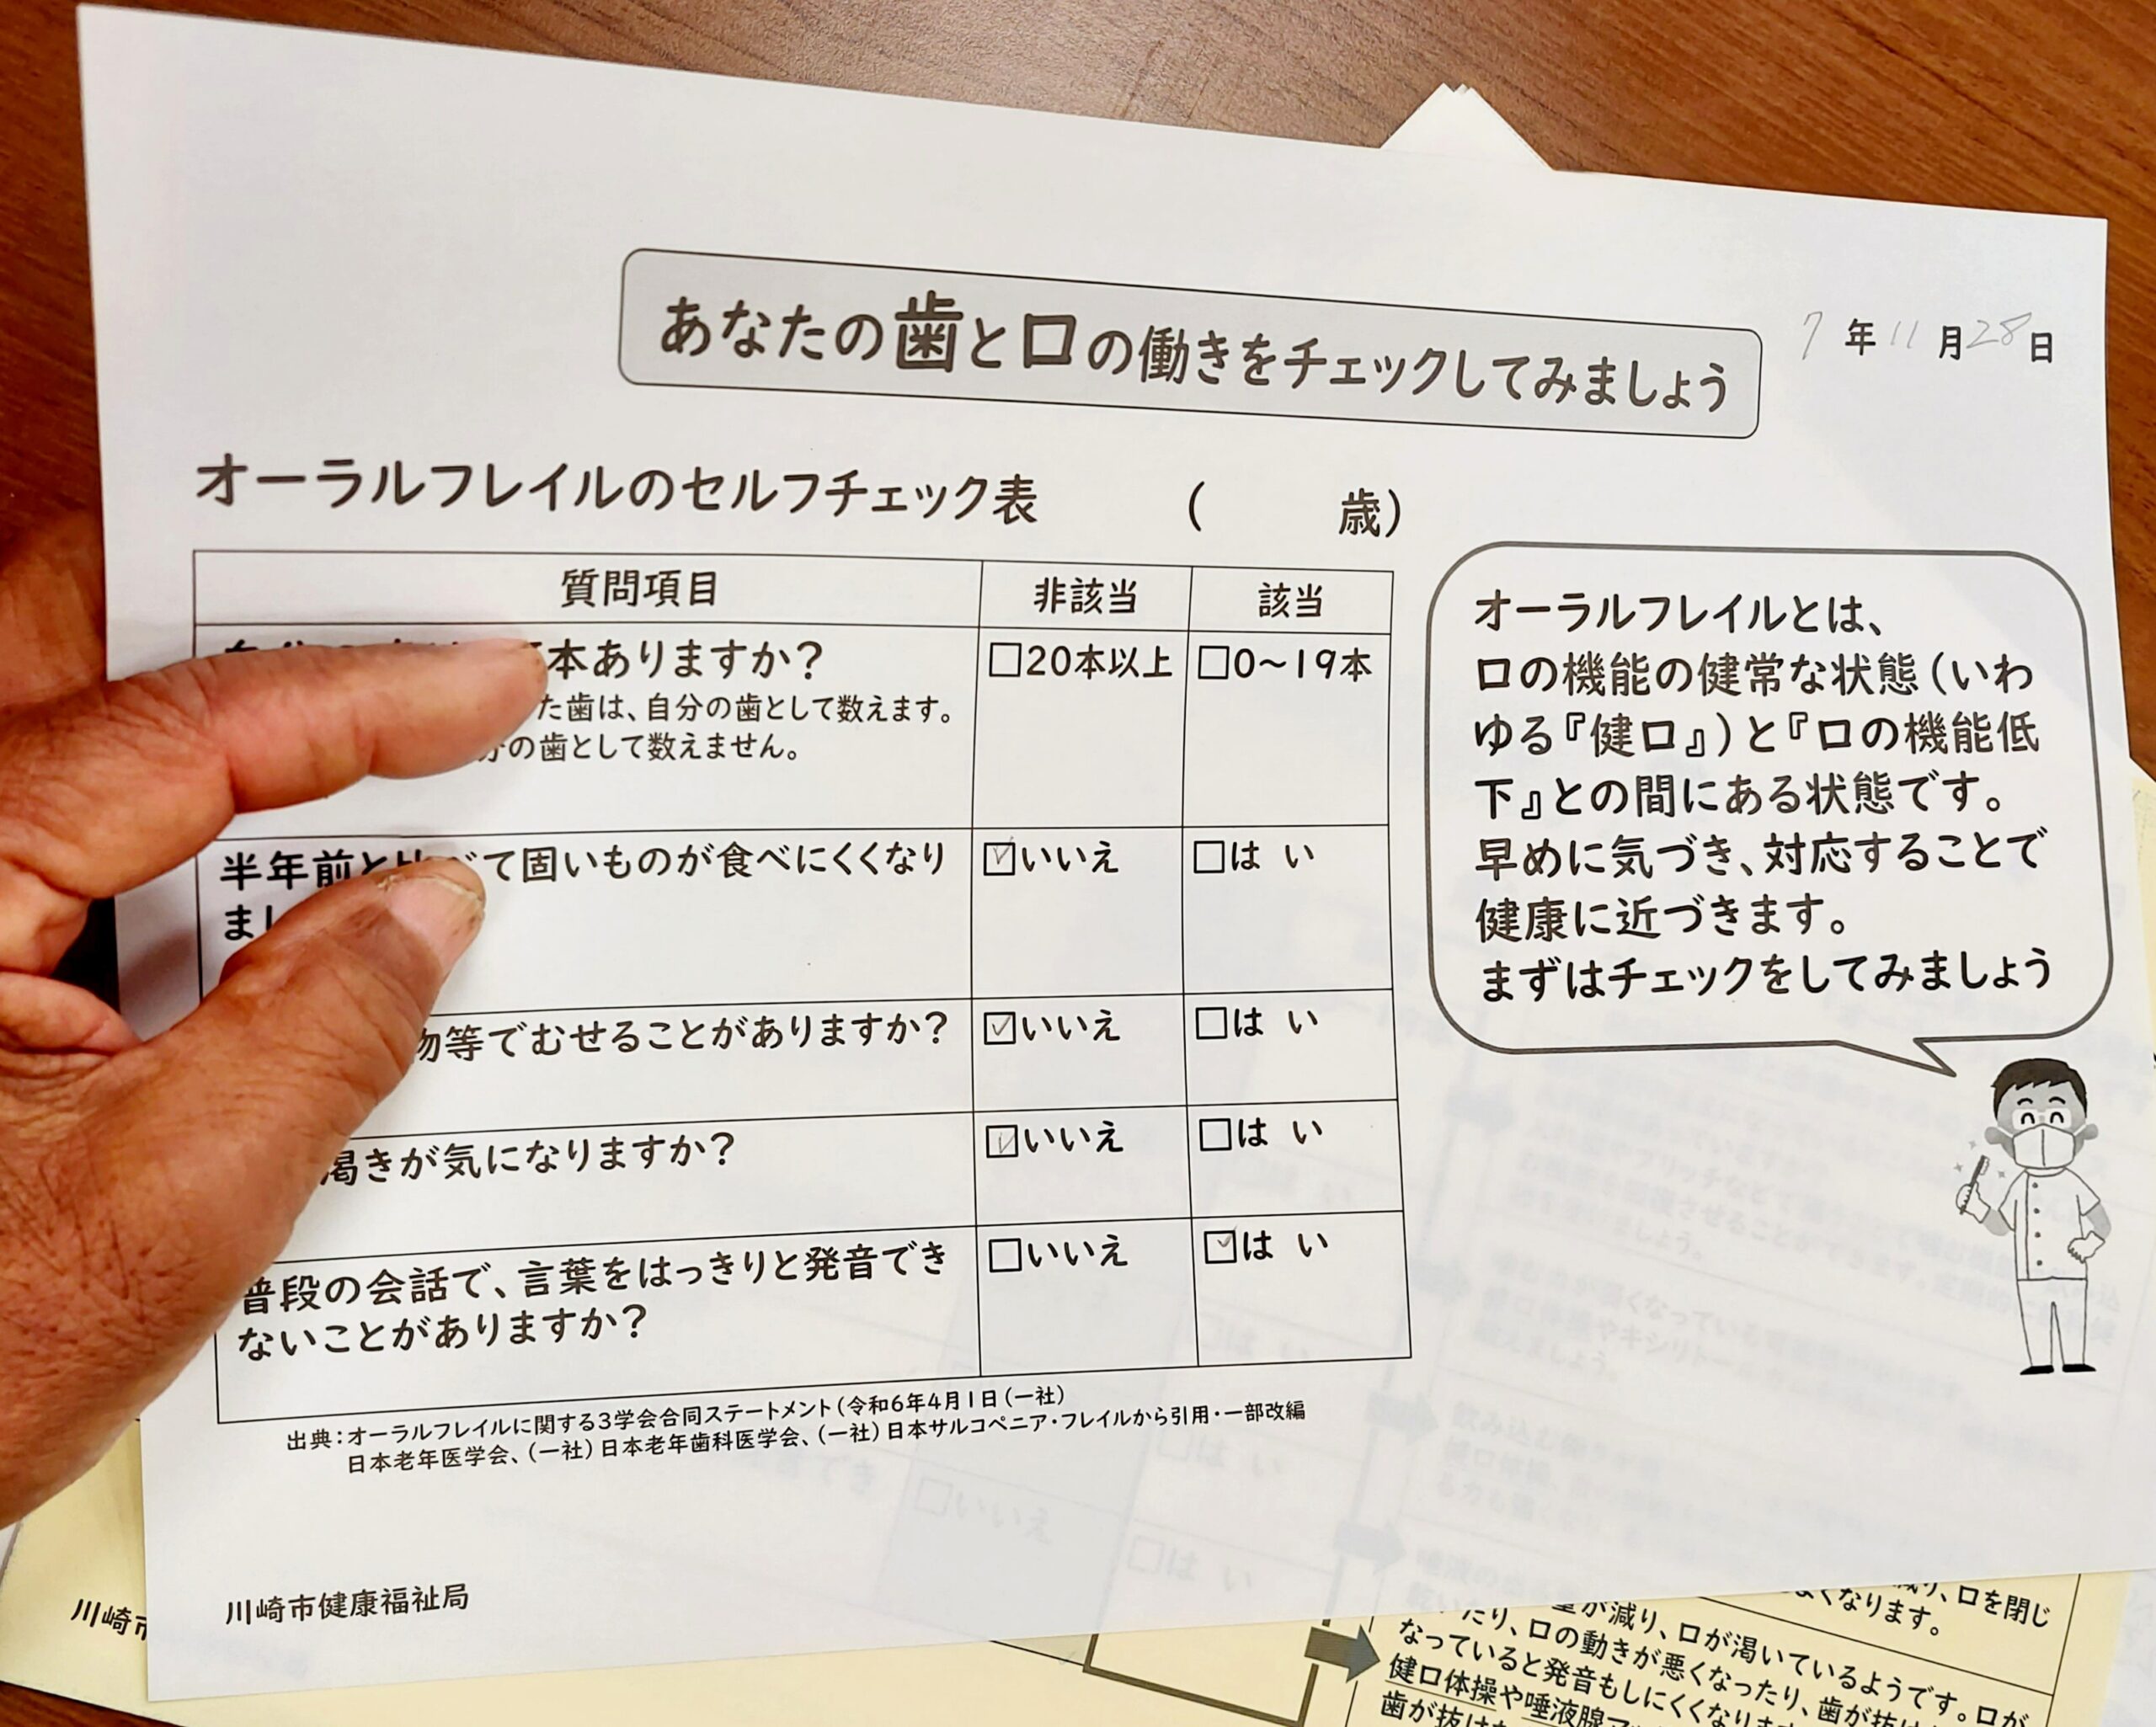 あなたの歯と口の働きをチェックしてみましょう
7年11月28日
オーラルフレイルのセルフチェック表 ( 歳)
質問項目 非該当 該当
本ありますか? □20本以上 □0~19本
た歯は、自分の歯として数えます。
の歯として数えません。
半年前と比べて固いものが食べにくくなり ☑いいえ □は い
まし
物等でむせることがありますか? ☑いいえ □は い
渇きが気になりますか? ☑いいえ □は い
普段の会話で、言葉をはっきりと発音でき □いいえ ☑は い
ないことがありますか?
出典:オーラルフレイルに関する3学会合同ステートメント(令和6年4月1日(一社)
日本老年医学会、(一社)日本老年歯科医学会、(一社)日本サルコペニア・フレイルから引用・一部改編
オーラルフレイルとは、
口の機能の健常な状態(いわ
ゆる『健口』)と『口の機能低
下』との間にある状態です。
早めに気づき、対応することで
健康に近づきます。
まずはチェックをしてみましょう
川崎市健康福祉局
川崎市
減り、口を閉じ
よくなります。
量が減り、口が渇いているようです。口が
いたり、口の動きが悪くなったり、歯が抜け
なっていると発音もしにくくなります
健口体操や唾液腺マッ
歯が抜け